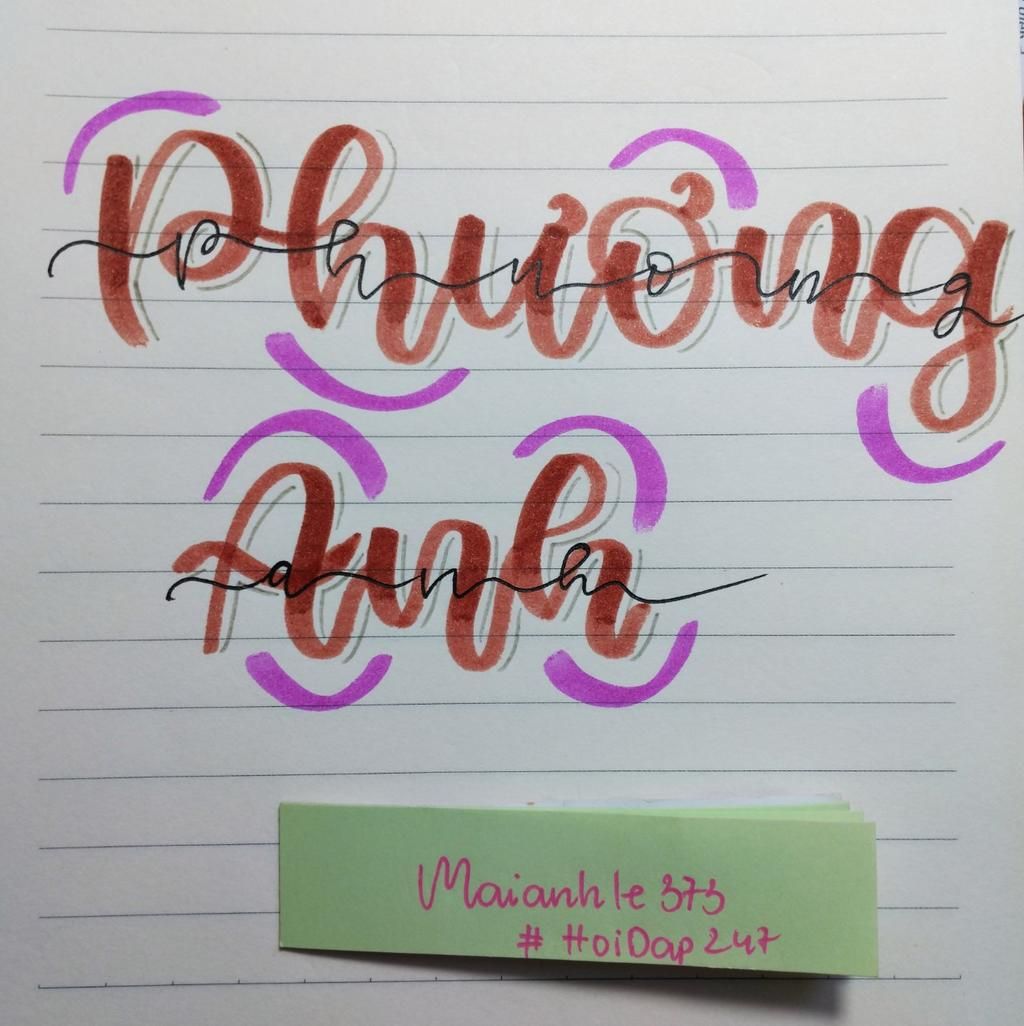 Phương
phuong
Anh
anh
Maianhle 373
# HoiDap 247